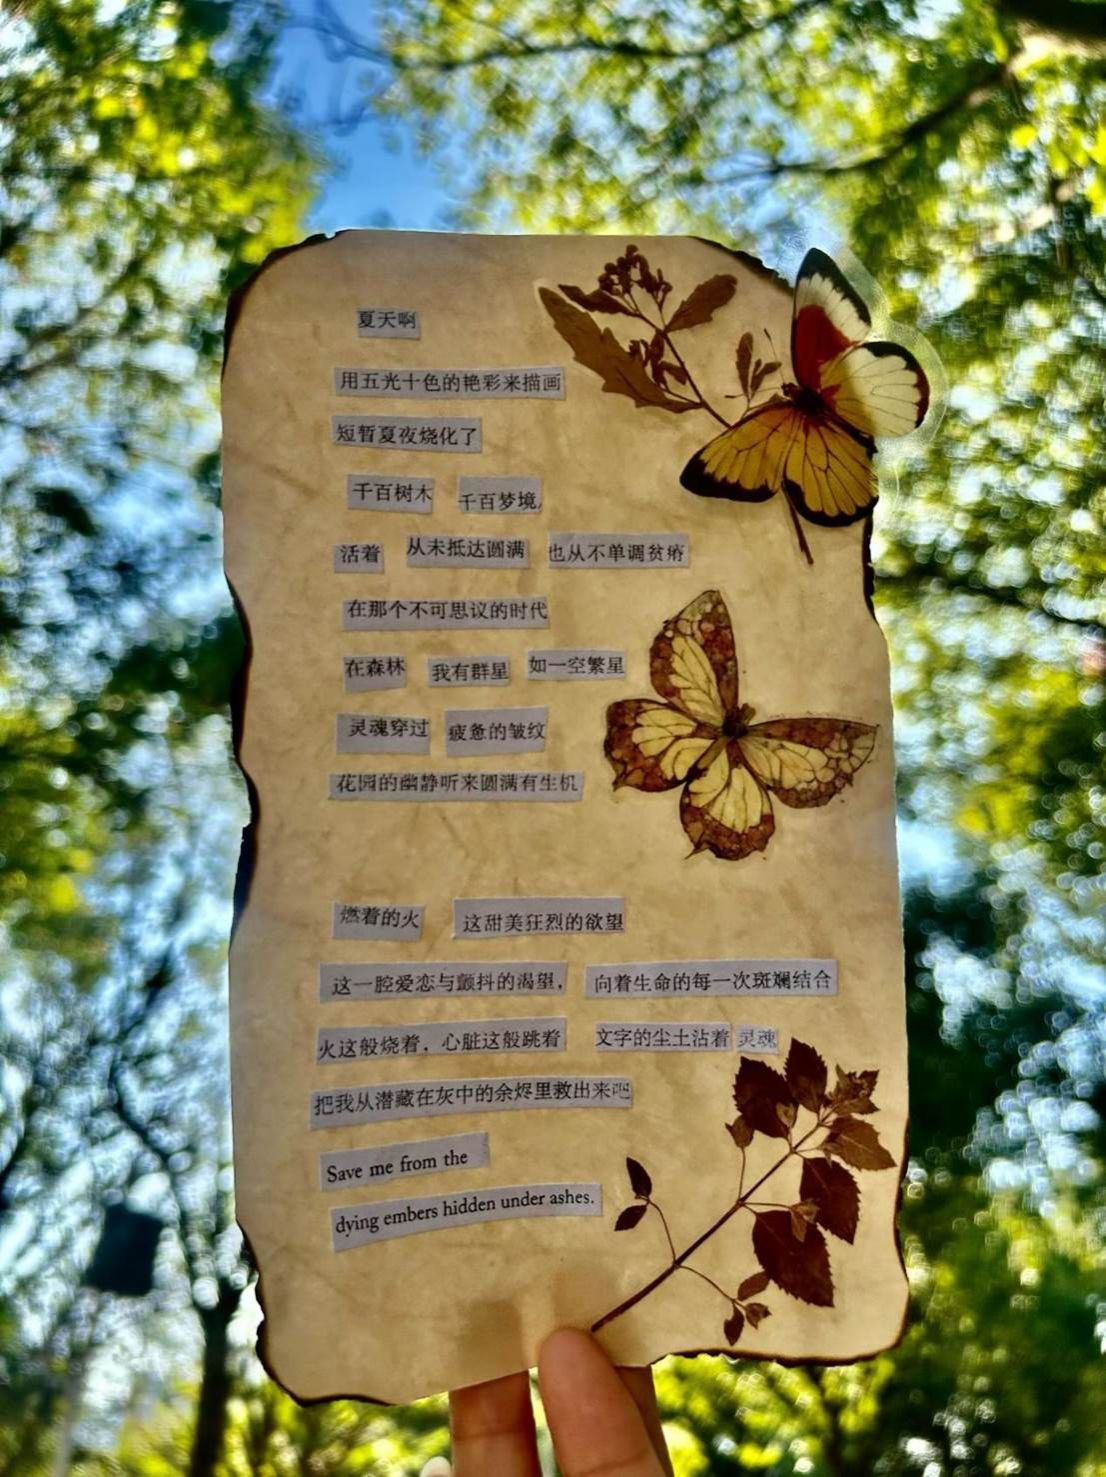 夏天啊
用五光十色的艳彩来描画
短暂夏夜烧化了
千百树木 千百梦境,
活着 从未抵达圆满 也从不单调贫瘠
在那个不可思议的时代
在森林 我有群星 如一空繁星
灵魂穿过 疲惫的皱纹
花园的幽静听来圆满有生机
燃着的火 这甜美狂烈的欲望
这一腔爱恋与颤抖的渴望， 向着生命的每一次斑斓结合
火这般烧着，心脏这般跳着 文字的尘土沾着 灵魂
把我从潜藏在灰中的余烬里救出来吧
Save me from the
dying embers hidden under ashes.